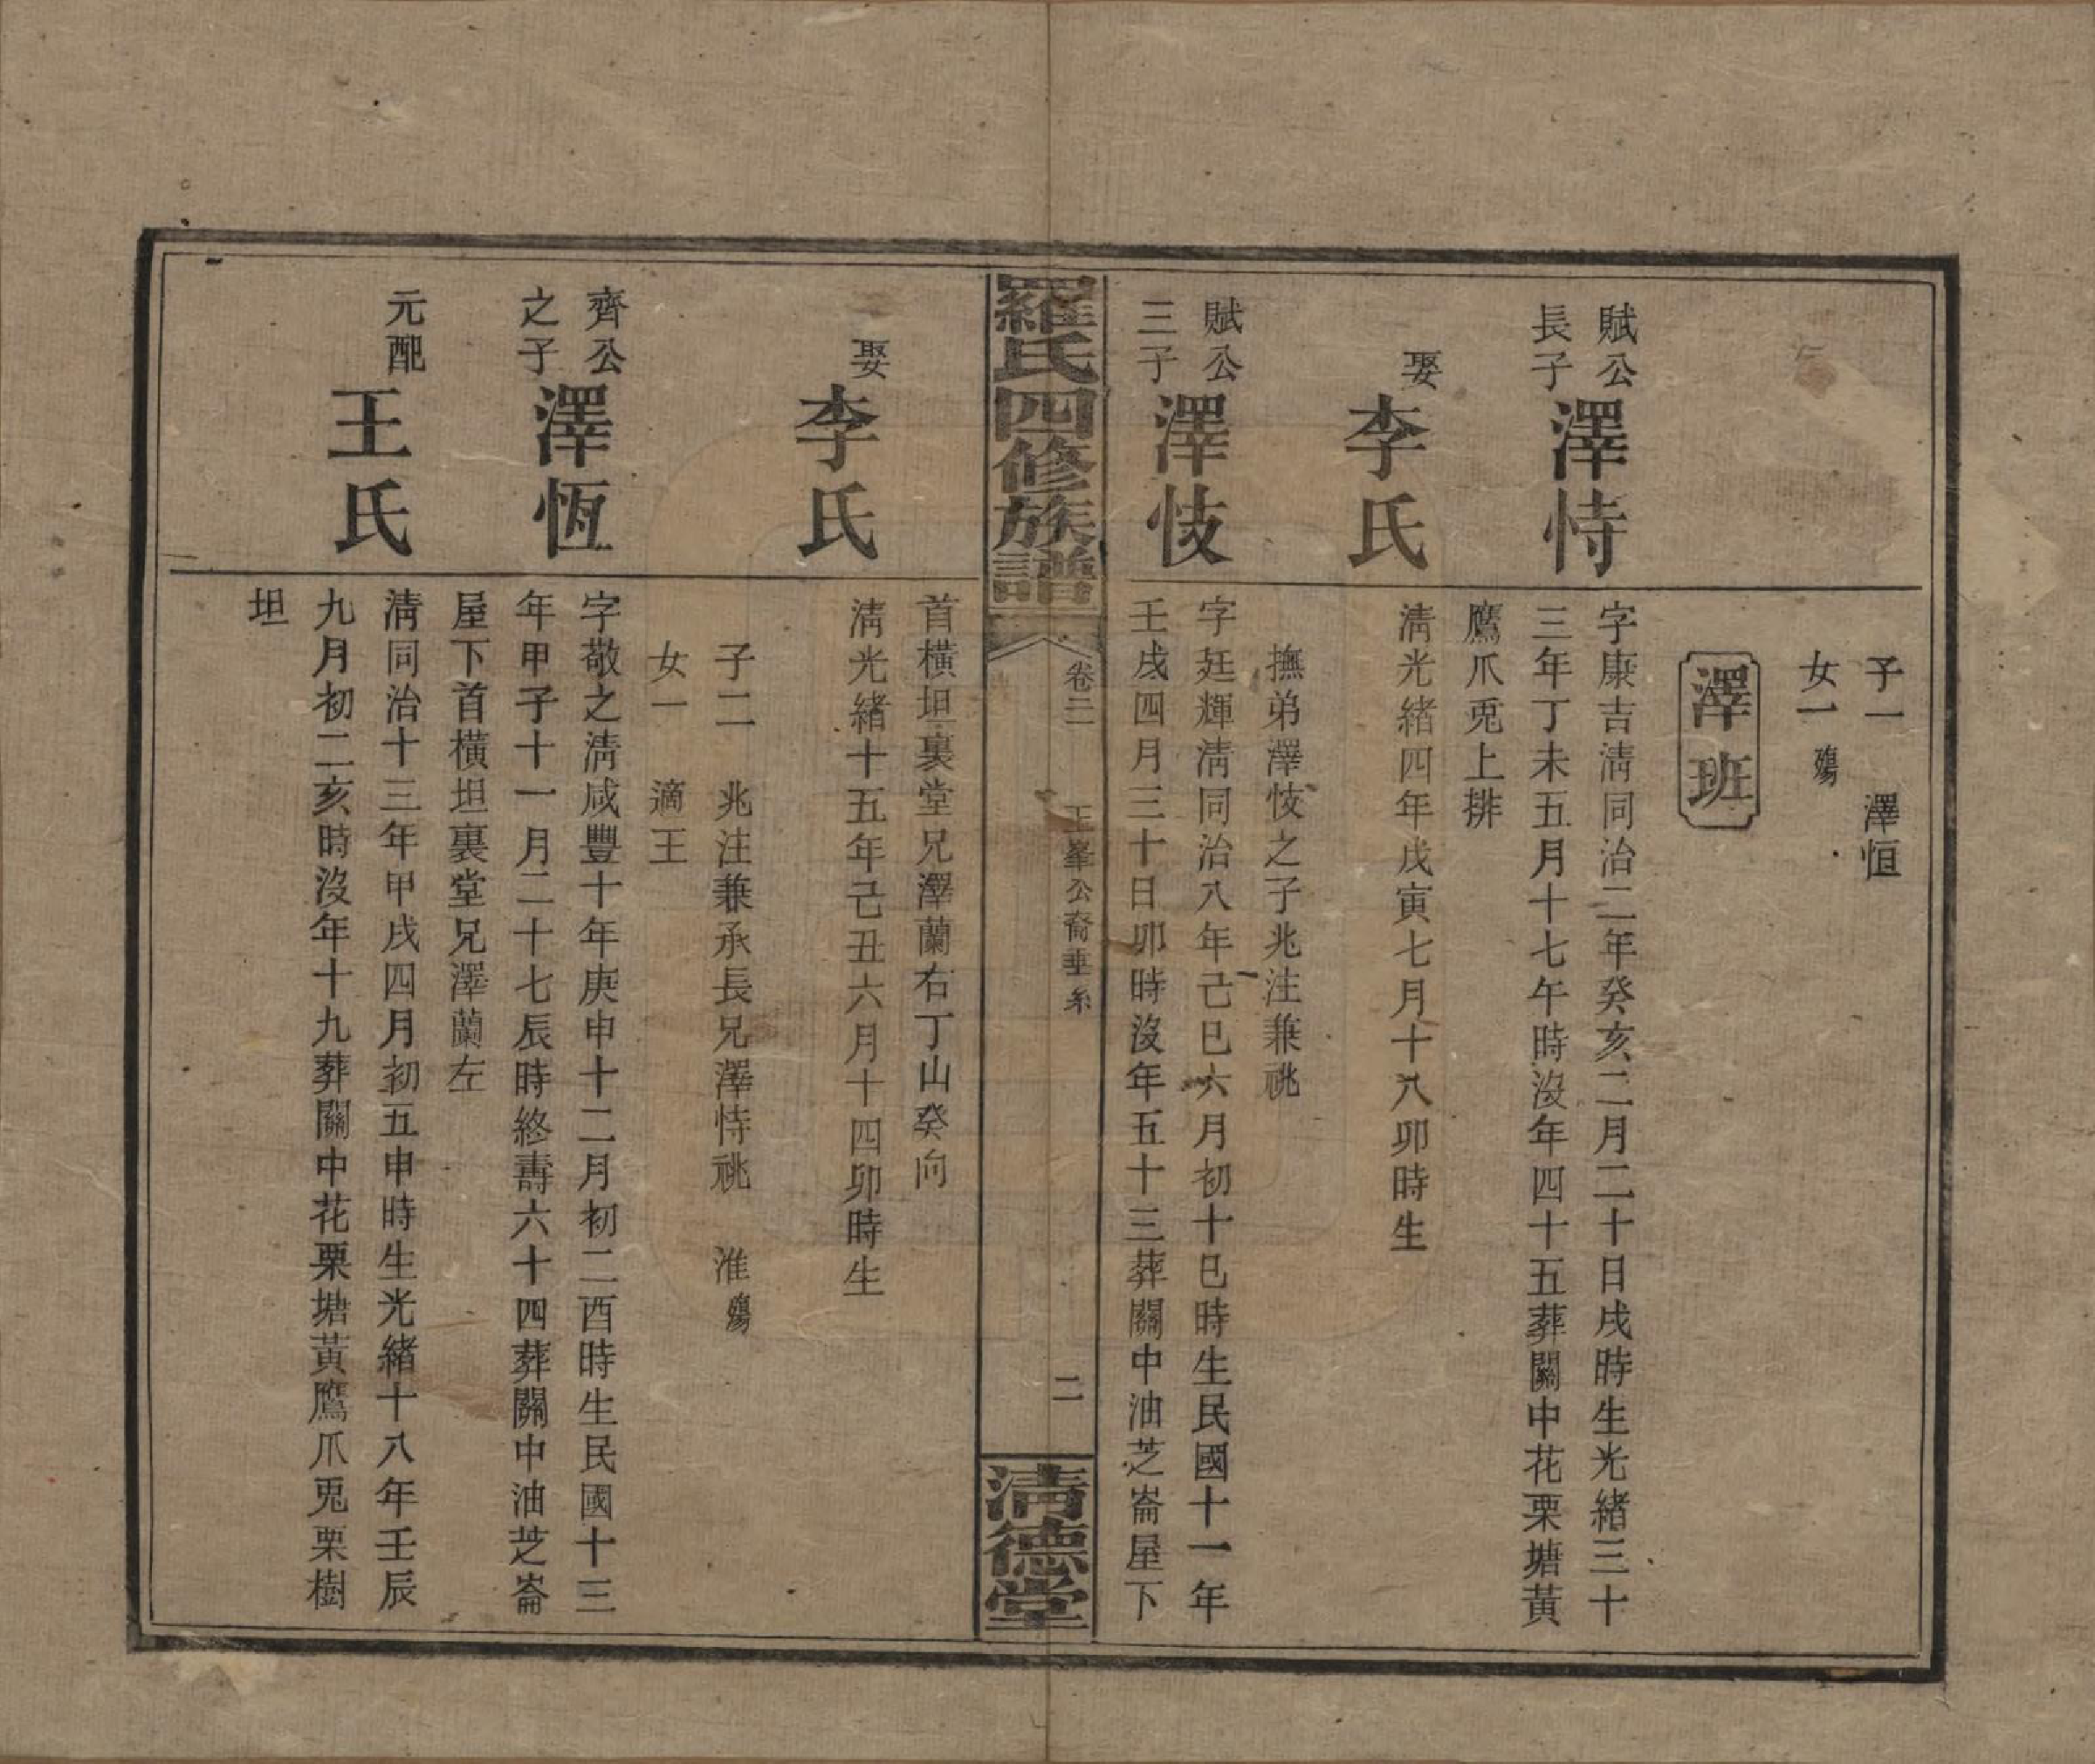 子一　澤恒
女一　殤
澤班
賦公
長子
澤恃
字康吉淸同治二年癸亥二月二十日戌時生光緖三十
三年丁未五月十七午時沒年四十五葬關中花栗塘黃
鷹爪兎上排
娶
李氏
淸光緖四年戊寅七月十八卯時生
撫弟澤忮之子兆注兼祧
賦公
三子
澤忮
字廷輝淸同治八年己巳六月初十巳時生民國十一年
壬戌四月三十日卯時沒年五十三葬關中油芝崙屋下
羅氏四修族譜
卷三
玉峯公裔垂糸
二
淸德堂
首橫坦裏堂兄澤蘭右丁山癸向
娶
李氏
淸光緖十五年己丑六月十四卯時生
子二　兆注兼承長兄澤恃祧　淮殤
女一　適王
齊公
之子
澤恆
字敬之淸咸豐十年庚申十二月初二酉時生民國十三
年甲子十一月二十七辰時終壽六十四葬關中油芝崙
屋下首橫坦裏堂兄澤蘭左
元配
王氏
淸同治十三年甲戌四月初五申時生光緖十八年壬辰
九月初二亥時沒年十九葬關中花栗塘黃鷹爪兎栗樹
坦